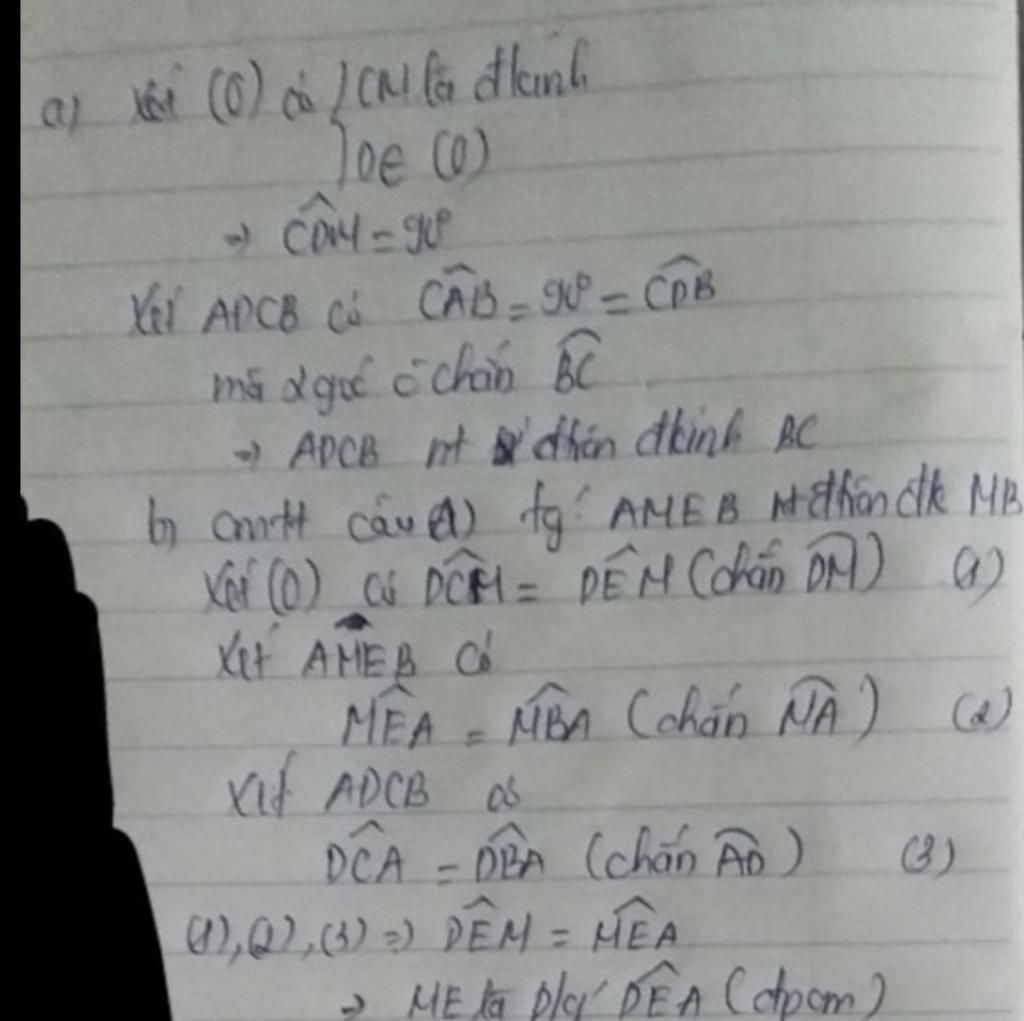 a) Xét (O) có { CM là đkính
D∈ (O)
⇒ \widehat{CDM} = 90°
Xét ADCB có \widehat{CAB} = 90° = \widehat{CDB}
mà 2 góc chắn \widehat{BC}
⇒ ADCB nt đtròn đkính BC
b) cmtt câu a) tg' AMEB nt đtròn đk MB
Xét (O) có \widehat{DCM} = \widehat{DEM} (chắn \widehat{DM}) (1)
Xét AMEB có
\widehat{MEA} = \widehat{MBA} (chắn \widehat{MA}) (2)
Xét ADCB có
\widehat{DCA} = \widehat{DBA} (chắn \widehat{AD}) (3)
(1),(2),(3) ⇒ \widehat{DEM} = \widehat{MEA}
⇒ ME là p/g' \widehat{DEA} (đpcm)